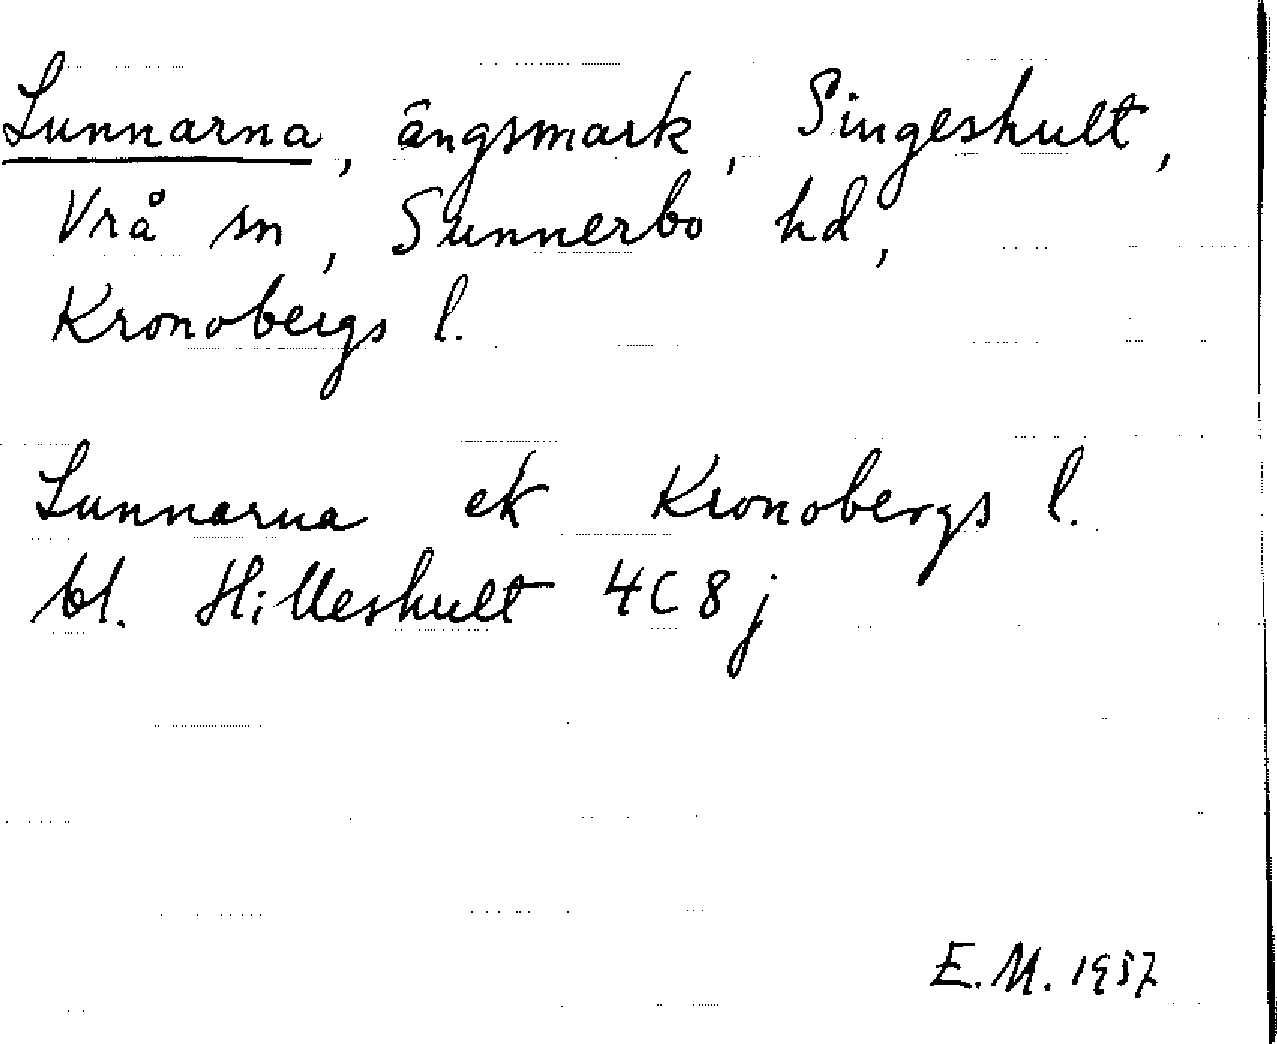 Lunnarna, ängsmark, Singeshult,
Vrå sn, Sunnerbo hd,
Kronobergs l.
Lunnarna ek Kronobergs l.
bl. Hilleshult 4C8j
E.M. 1957